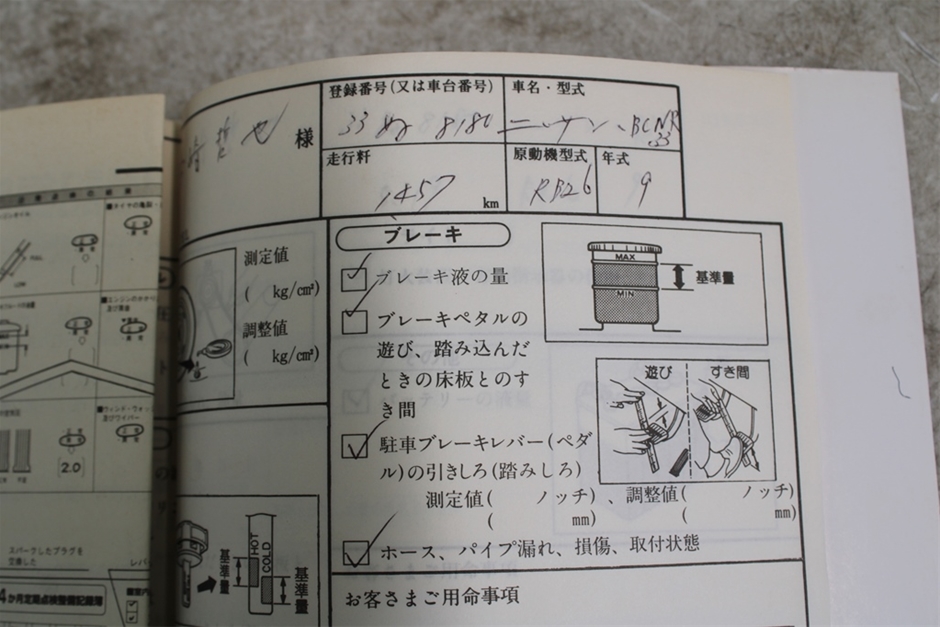 様
登録番号(又は車台番号)
33 ぬ 8180
車名・型式
ニッサン、BCNR
33
走行粁
1457
km
原動機型式
RB26
年式
9
測定値
( kg/cm²)
調整値
( kg/cm²)
ブレーキ
ブレーキ液の量
ブレーキペタルの
遊び、踏み込んだ
ときの床板とのす
き間
駐車ブレーキレバー(ペダ
ル)の引きしろ(踏みしろ)
測定値( ノッチ)、調整値( ノッチ)
( mm) ( mm)
ホース、パイプ漏れ、損傷、取付状態
お客さまご用命事項
MAX
MIN
基準量
遊び
すき間
HOT
COLD
基準量
基準量
FULL
LOW
及びワイパー
(2.0)
スパークしたプラグを
交換した
か月定期点検整備記録簿